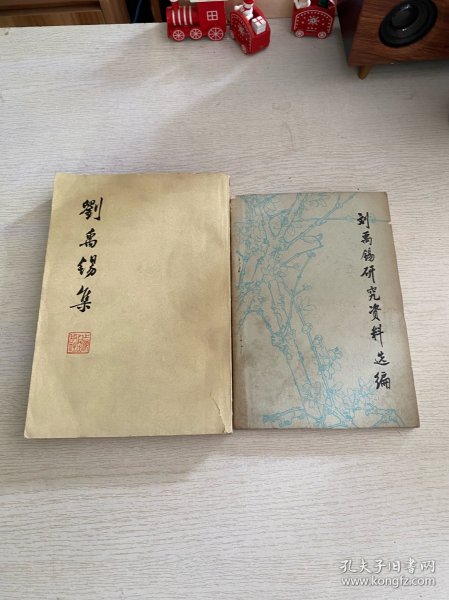 劉禹錫集
刘禹锡研究资料选编
孔夫子旧书网
www.kongfz.com